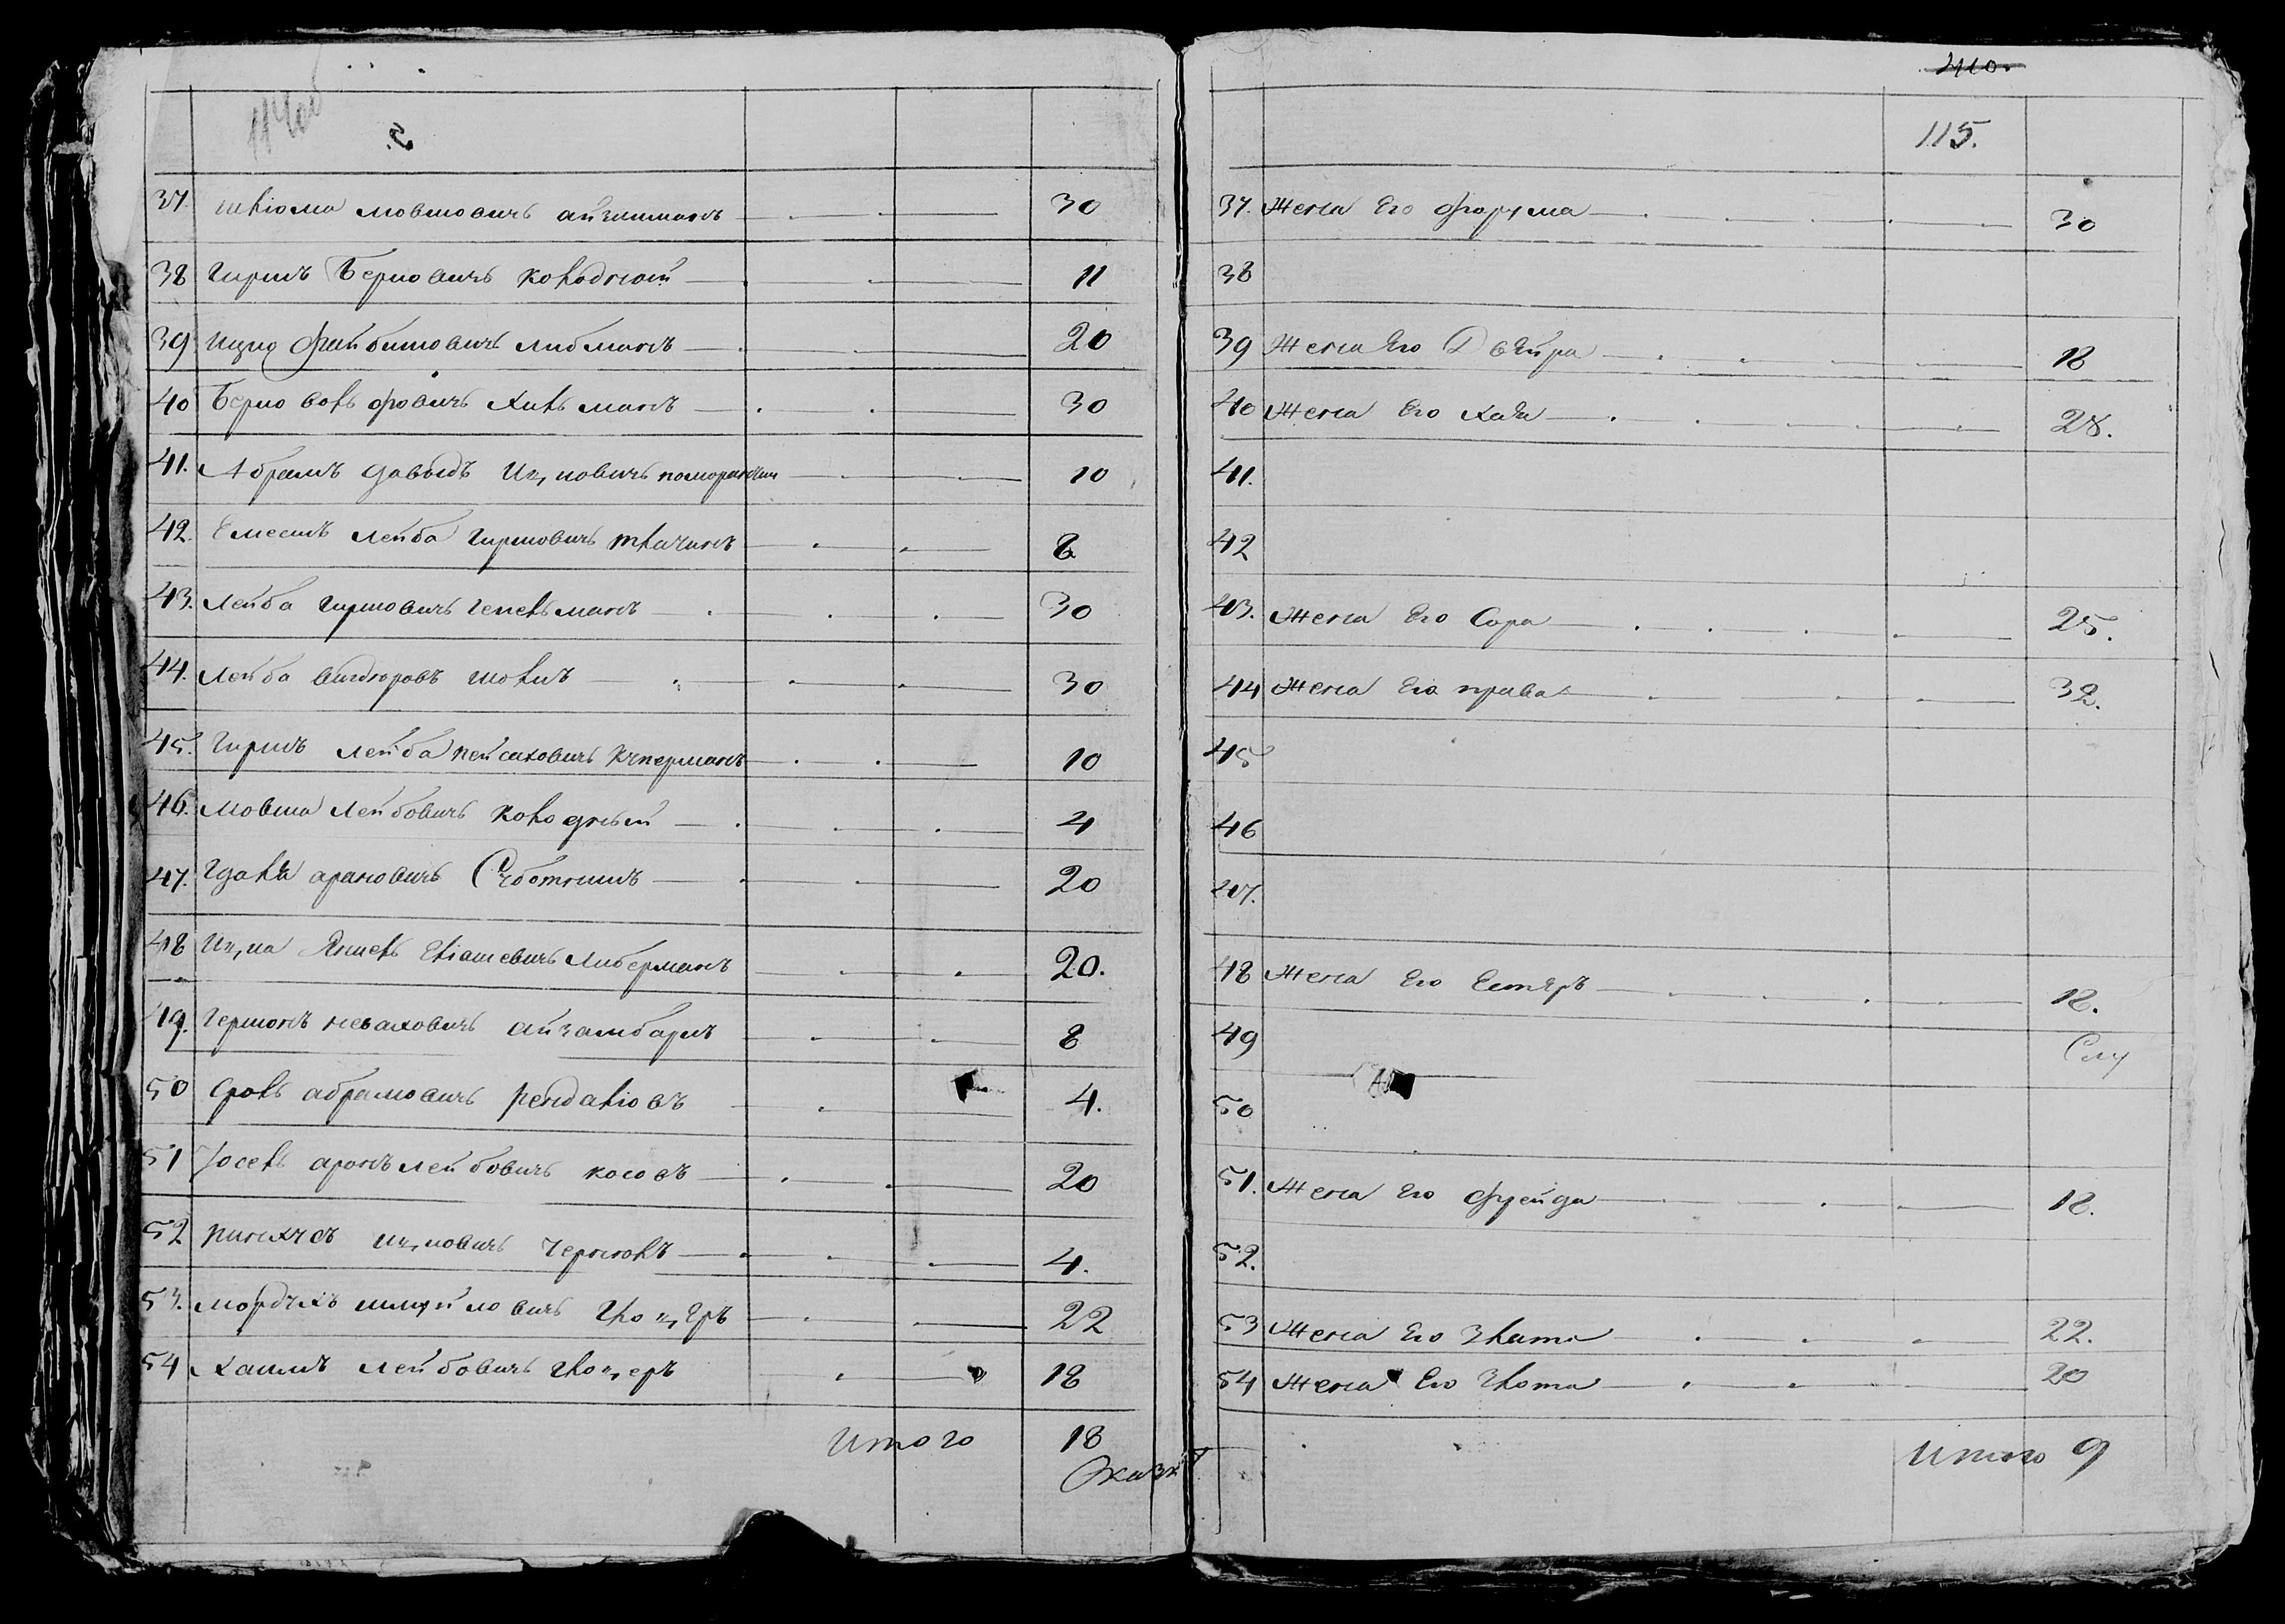 5.
37. Шліома Мовшовичъ Айзинманъ 30
38 Гиршъ Берковичъ Колодной 11
39 Ицко Файбишовичъ Либманъ 20
40 Берко Вольфовичъ Хильманъ 30
41. Абрамъ Давыдъ Ицковичъ 10
42. Лейба Гиршовичъ Ткачинъ 8
43. Лейба Гиршовичъ Генельманъ 30
44. Лейба Вигдоровъ 30
45. Гиршъ Лейба Пейсаховичъ Куперманъ 10
46. Мовша Лейбовичъ Колодный 4
47. Гдаля Ароновичъ Суботникъ 20
48 Ицка Янкель Еліашевичъ Либерманъ 20.
49. Гершонъ Неваховичъ 8
50 Сроль Абрамовичъ 4.
51 Іосель Аронъ Лейбовичъ Косовъ 20
52 Пинхусъ Ицковичъ 4.
53. Мордухъ Шмуйловичъ Клоцеръ 22
54 Хаимъ Лейбовичъ Клоцеръ 18
Итого 18
410.
115.
37. Жена Его Фрума 30
38
39 Жена Его Двейра 18
40 Жена Его Хая 28.
41.
42
43. Жена Его Сора 25.
44 Жена Его 32.
45
46
47.
48 Жена Его Естеръ 18.
49
50
51. Жена Его Фрейда 18.
52.
53 Жена Его Злата 22.
54 Жена Его Злота 20
Итого 9